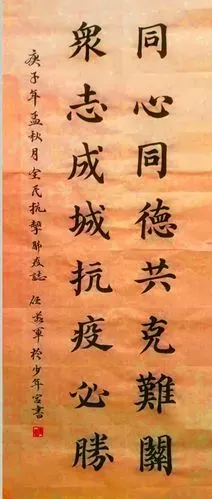 同心同德共克難關
衆志成城抗疫必勝
庚子年孟秋月全民抗擊肺炎誌 任益軍於少年宮書